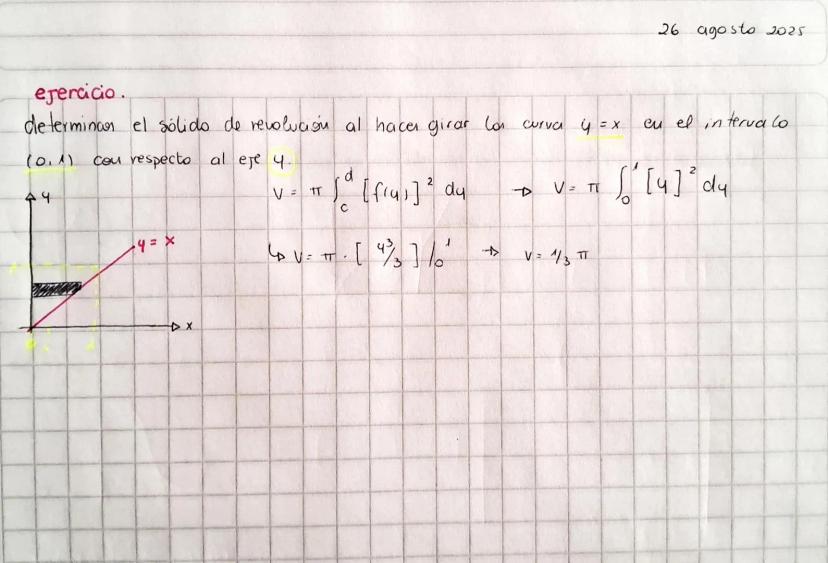 26 agosto 2025
ejercicio.
determinar el sólido de revolución al hacer girar la curva y = x en el intervalo
(0,1) con respecto al eje y.
V = π ∫_c^d [f(y)]² dy → V = π ∫_0^1 [y]² dy
↳ V = π · [y³/3] /_0^1 → V = 1/3 π
y
y = x
x